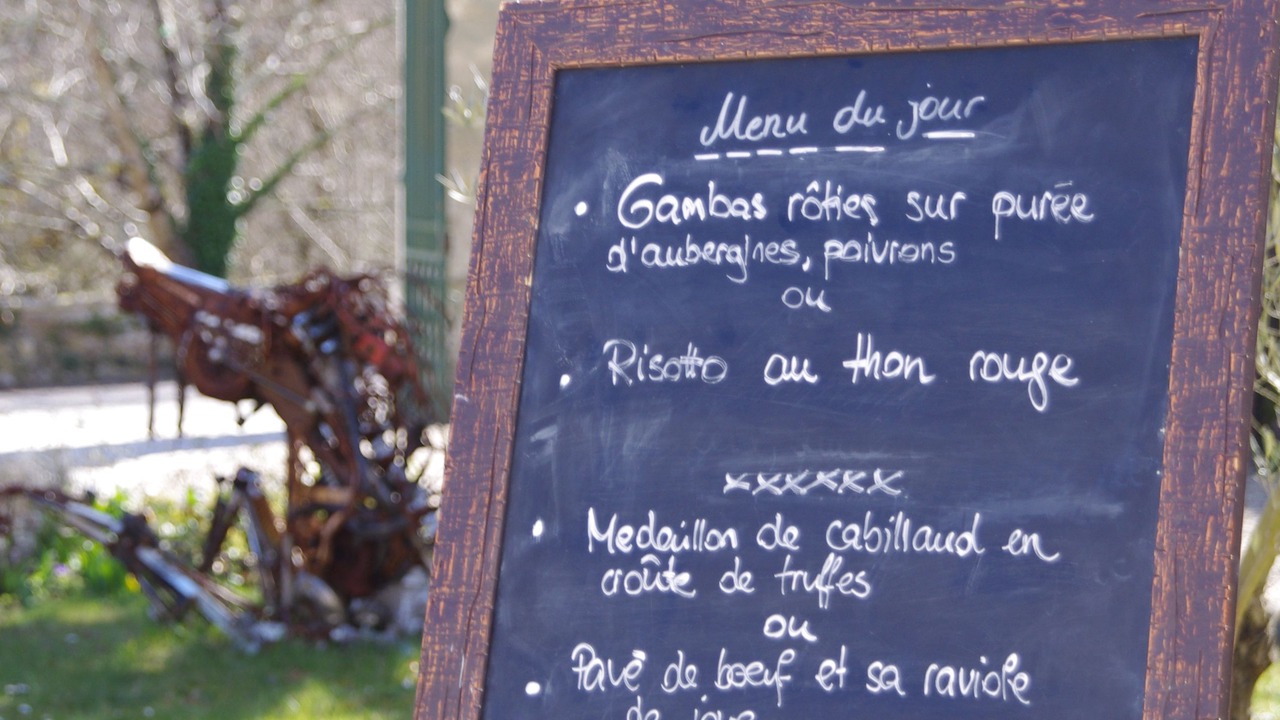 Menu du jour
• Gambas rôties sur purée
d'aubergines, poivrons
ou
• Risotto au thon rouge
xxxxxx
• Medaillon de cabillaud en
croûte de truffes
ou
• Pavé de boeuf et sa raviole
de joue